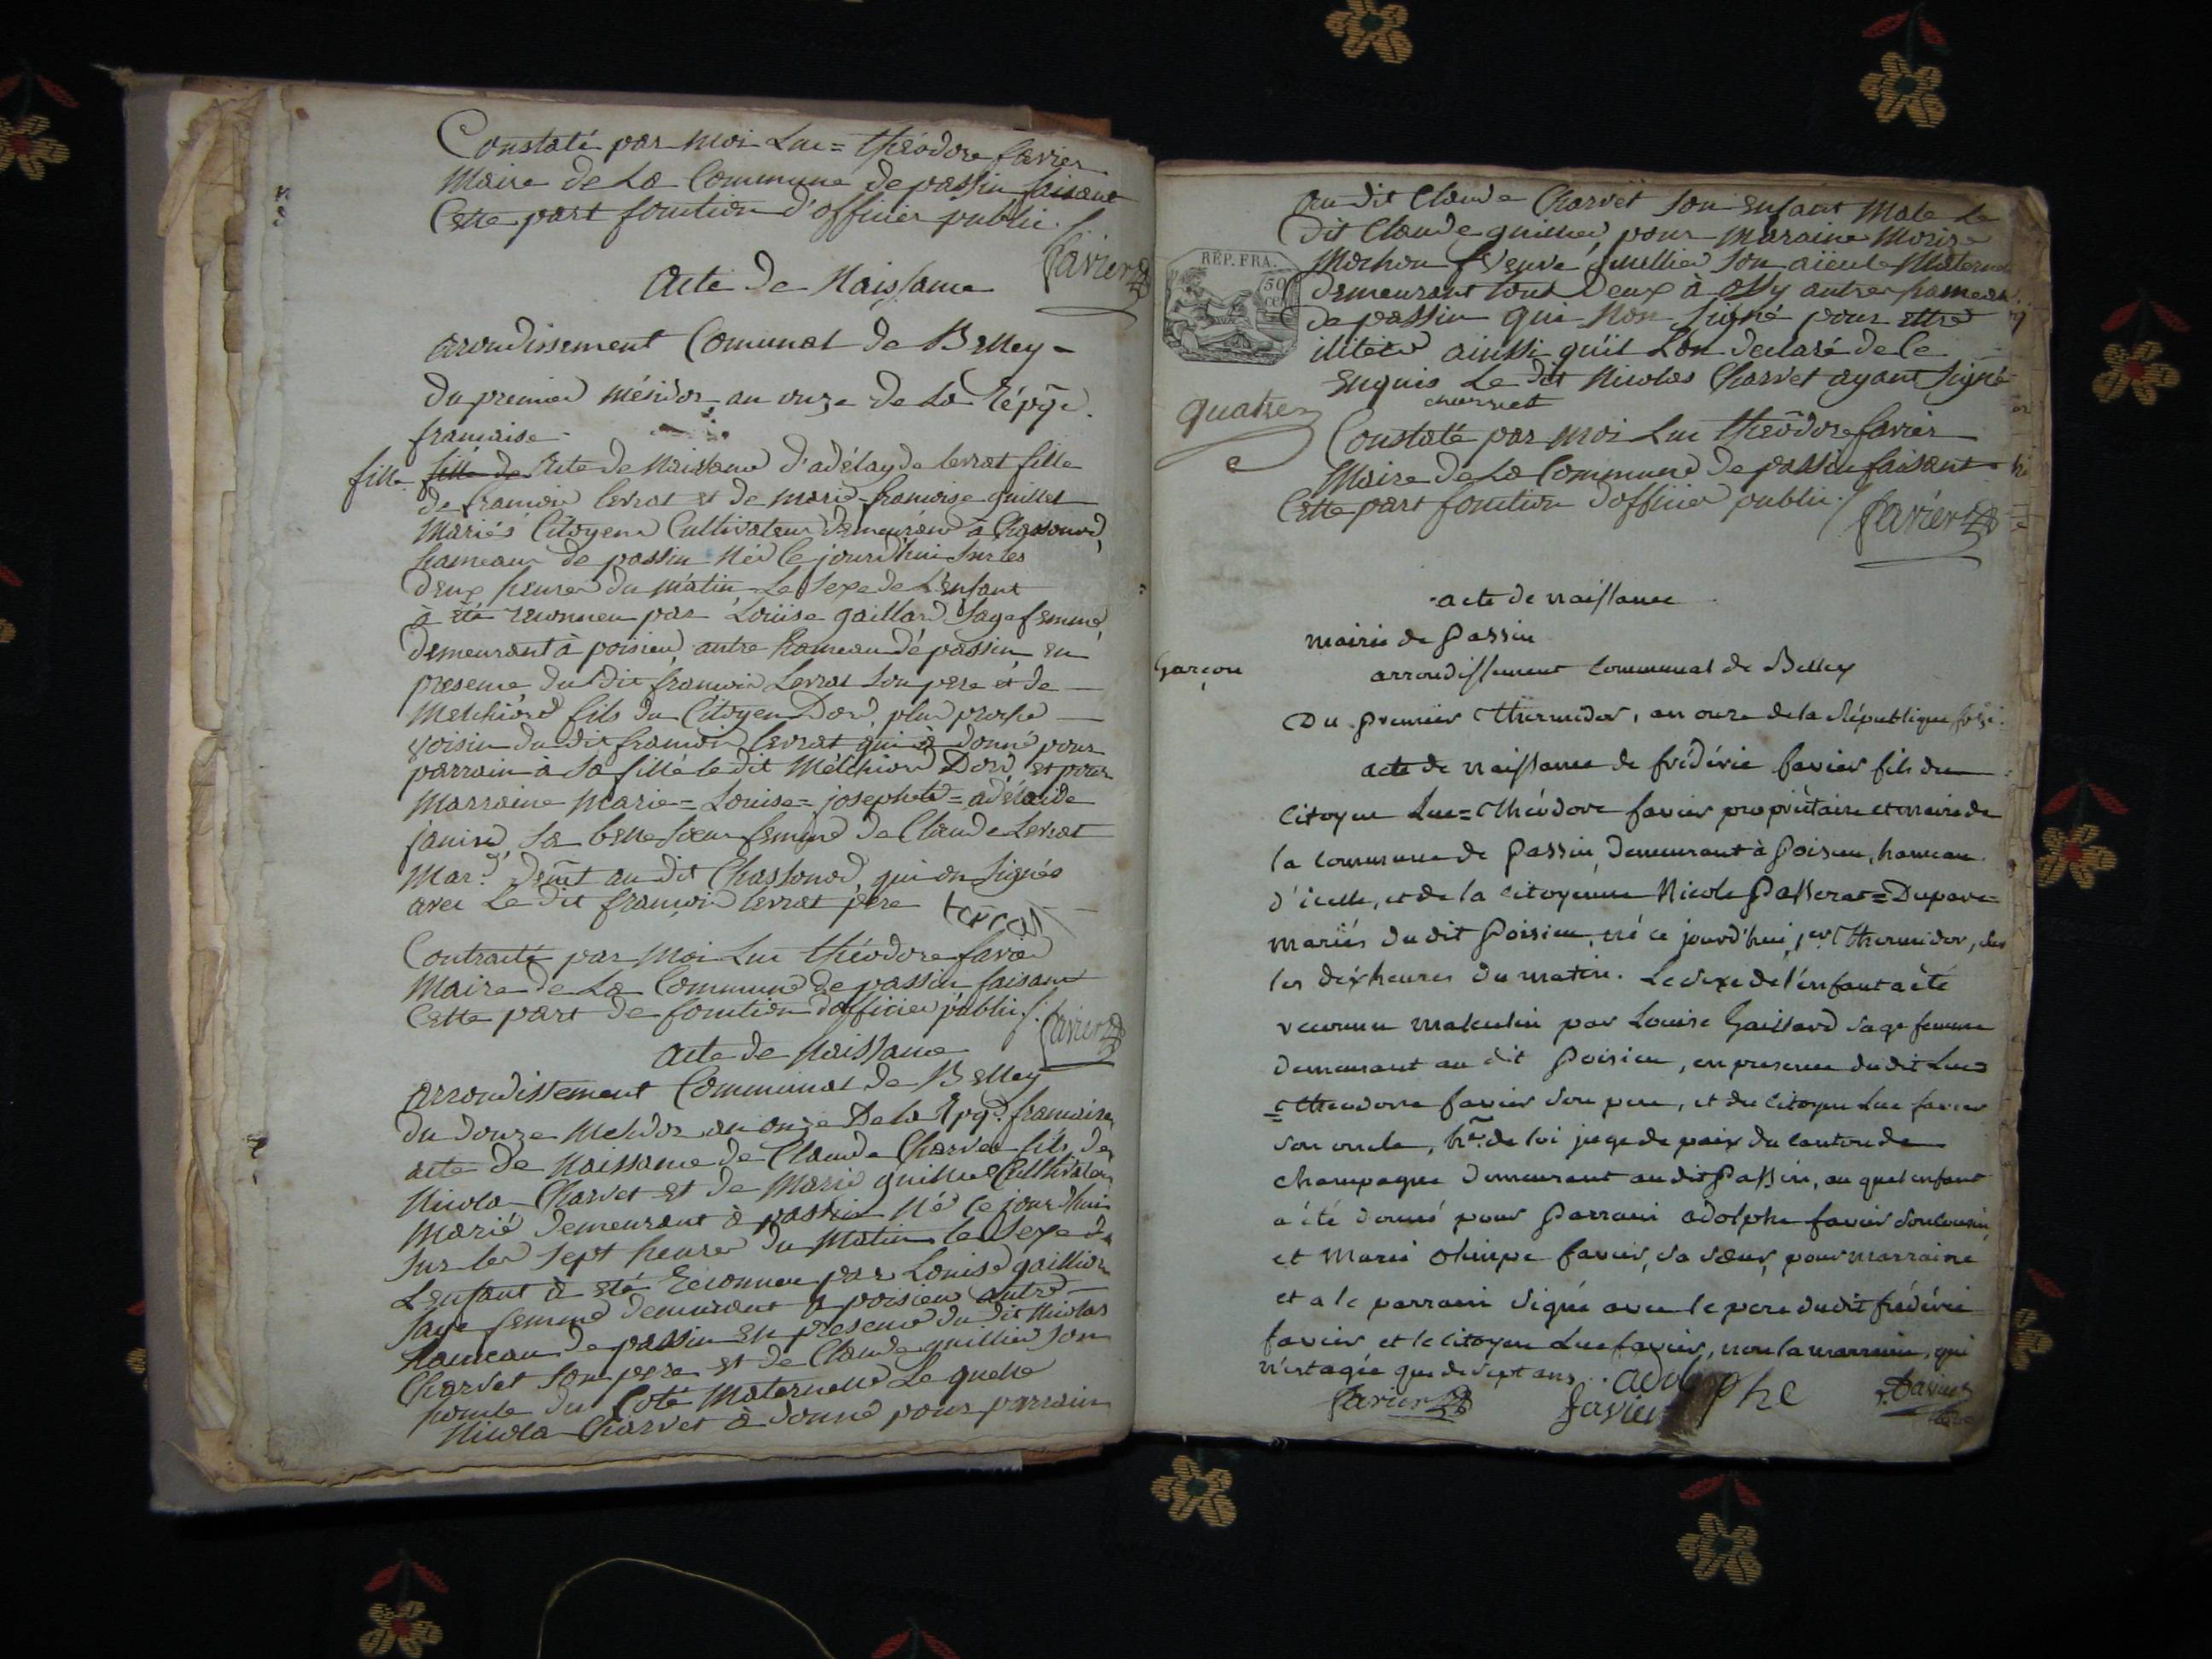 Constaté par moi Luc = théodore favier
Maire de La Commune de passin faisant
Cette part fonction d'officier public.
favier
Acte de Naissance
arondissement Comunal de Belley -
du premier méssidor an onze de La Répq.
francaise
fille fille de Acte de Naissance d'adélayde levrat fille
de francois levrat et de marie francoise guillet
Mariés Citoyens Cultivateur demeurant à Chassonod,
hameaux de passin Née le jourd'hui sur les
deux heures du matin Le Sexe de L'enfant
à été reconneu par Loüise gaillard Sage femme,
demeurant à poisieu, autre hameau de passin en
presence du dit francois Levrat son pere et de
Melchiord fils du Citoyen Dord, plus proche
voisin du dit francois levrat qui à donné pour
parrain à sa fille le dit Melchiord Dord, et pour
Marraine Marie = Louise = josephete = adélaïde
janind, sa belle soeur femme de Claude Levrat
Mar.d demt au dit Chassonod, qui on signés
avec Le dit francois levrat pere levrat
Contracté par Moi Luc théodore favier
Maire de La Commune de passin faisant
Cette part de fonction d'officier public. favier
Acte de Naissance
arrondissement Communal de Belley
du douze Messidor an onze De la Rpq. francaise
acte de Naissance de Claude Charvet fils de
Nicola Charvet et de Marie guillet Cultivateur
Marié demeurant à passin Né ce jourd'hui
sur les sept heures du Matin le Sexe de
L'enfant à été Reconneu par Louise gaillard
sage femme demeurant à poisieu autre
hameau de passin en presence du dit Nicolas
Charvet son pere et de Claude guillier son
honcle du Coté Maternelle Le quelle
Nicola Charvet à donné pour parrain
au dit Claude Charvet son enfant Male Le
dit Claude guillier, pour Maraine Marie
Mochon Veuve guillier son aïeule Maternelle
demeurant tout deux à ossy autre hameau
de passin qui non signé pour ettre
iliteré ainssi qu'il L'on declaré de ce
enquis Le dit Nicolas Charvet ayant signé
charvet
RÉP. FRA.
50
quatre
Constaté par moi Luc théodore favier
Maire de La Commune de passin faisant
Cette part fonction d'officier public. favier
acte de naissance
mairie de Passin
Garçon arrondissement communal de Belley
Du premier thermidor, an onze de la République fse.
acte de naissance de frédéric favier fils du
citoyen Luc=théodore favier propriétaire et maire de
la commune de Passin demeurant à Poisieu, hameau
d'icelle, et de la citoyenne Nicole Passerat=Duparc
mariés du dit Poisieu, né ce jourd'hui 1er thermidor, dès
les dix heures du matin. Le sexe de l'enfant a été
reconnu masculin par Louise Gaillard sage femme
demeurant au dit Poisieu, en presence du dit Luc=
=theodore favier son pere, et du citoyen Luc favier
son oncle, he. de loi juge de paix du canton de
champagne demeurant au dit Passin, au quel enfant
a été donné pour Parrain adolphe favier son cousin,
et Marie Olimpe favier, sa sœur, pour marraine
et a le parrain signé avec le pere du dit frédéric
favier, et le citoyen Luc favier, non la marraine, qui
n'est agée que de sept ans. adolphe
favier favier favier